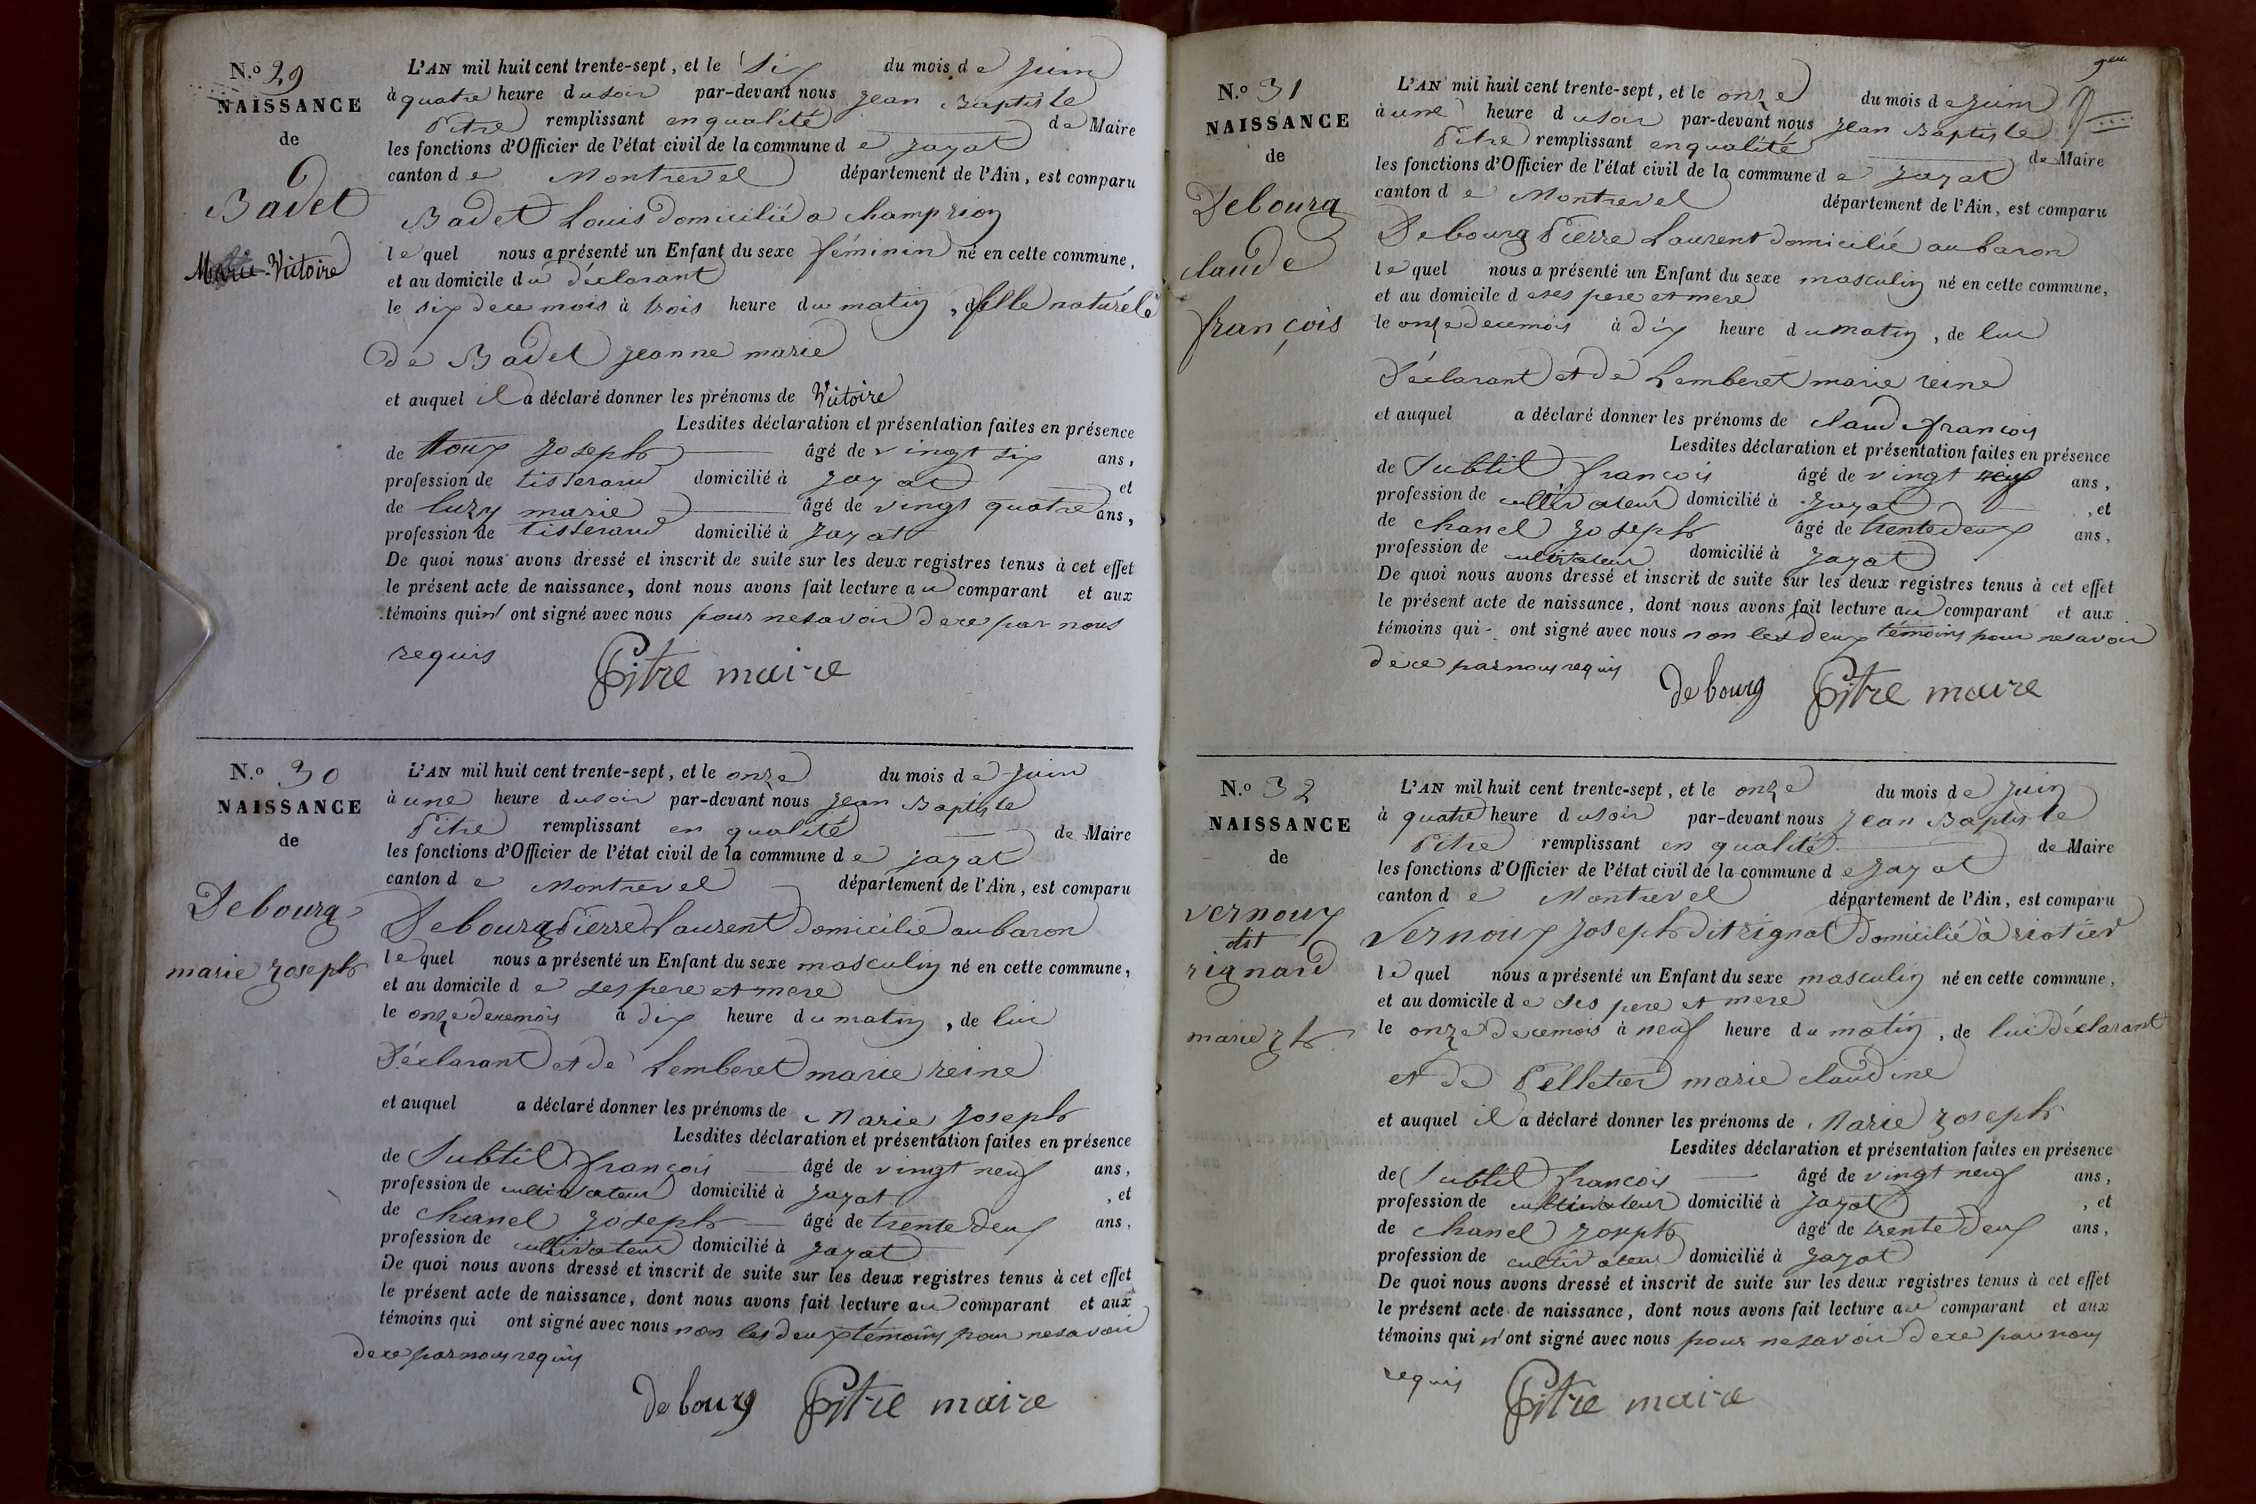 N.o 29
NAISSANCE
de
Badet
Victoire
L'AN mil huit cent trente-sept, et le six du mois de juin
à quatre heure du soir par-devant nous Jean Baptiste
Pitre remplissant en qualité de Maire
les fonctions d'Officier de l'état civil de la commune de jayat
canton de Montrevel département de l'Ain, est comparu
Badet Louis domicilié a champrion
lequel nous a présenté un Enfant du sexe féminin né en cette commune,
et au domicile du déclarant
le six de ce mois à trois heure du matin, fille naturele
de Badet jeanne marie
et auquel il a déclaré donner les prénoms de Victoire
Lesdites déclaration et présentation faites en présence
de Roux joseph âgé de vingt six ans,
profession de tisserand domicilié à jayat et
de luzy marie âgé de vingt quatre ans,
profession de tisserand domicilié à jayat
De quoi nous avons dressé et inscrit de suite sur les deux registres tenus à cet effet
le présent acte de naissance, dont nous avons fait lecture au comparant et aux
témoins qui n'ont signé avec nous pour ne savoir de ce par nous
requis
Pitre maire
N.o 30
NAISSANCE
de
Debourg
marie joseph
L'AN mil huit cent trente-sept, et le onze du mois de juin
à une heure du soir par-devant nous Jean Baptiste
Pitre remplissant en qualité de Maire
les fonctions d'Officier de l'état civil de la commune de jayat
canton de Montrevel département de l'Ain, est comparu
Debourg Pierre Laurent domicilié au baron
lequel nous a présenté un Enfant du sexe masculin né en cette commune,
et au domicile de ses pere et mere
le onze de ce mois à dix heure du matin, de lui
Déclarant et de Lemberet marie reine
et auquel a déclaré donner les prénoms de Marie joseph
Lesdites déclaration et présentation faites en présence
de Subtil françois âgé de vingt neuf ans,
profession de cultivateur domicilié à jayat, et
de chanel joseph âgé de trente deux ans,
profession de cultivateur domicilié à jayat
De quoi nous avons dressé et inscrit de suite sur les deux registres tenus à cet effet
le présent acte de naissance, dont nous avons fait lecture au comparant et aux
témoins qui ont signé avec nous non les deux témoins pour ne savoir
de ce par nous requis
de bourg Pitre maire
N.o 31
NAISSANCE
de
Debourg
claude
françois
L'AN mil huit cent trente-sept, et le onze du mois de juin
à une heure du soir par-devant nous Jean Baptiste
Pitre remplissant en qualité de Maire
les fonctions d'Officier de l'état civil de la commune de jayat
canton de Montrevel département de l'Ain, est comparu
Debourg Pierre Laurent domicilié au baron
lequel nous a présenté un Enfant du sexe masculin né en cette commune,
et au domicile de ses pere et mere
le onze de ce mois à dix heure du matin, de lui
Déclarant et de Lemberet marie reine
et auquel a déclaré donner les prénoms de claude françois
Lesdites déclaration et présentation faites en présence
de Subtil françois âgé de vingt neuf ans,
profession de cultivateur domicilié à jayat, et
de chanel joseph âgé de trente deux ans,
profession de cultivateur domicilié à jayat
De quoi nous avons dressé et inscrit de suite sur les deux registres tenus à cet effet
le présent acte de naissance, dont nous avons fait lecture au comparant et aux
témoins qui ont signé avec nous non les deux témoins pour ne savoir
de ce par nous requis
de bourg Pitre maire
N.o 32
NAISSANCE
de
vernoux
dit
rignard
marie jh
L'AN mil huit cent trente-sept, et le onze du mois de juin
à quatre heure du soir par-devant nous Jean Baptiste
Pitre remplissant en qualité de Maire
les fonctions d'Officier de l'état civil de la commune de jayat
canton de Montrevel département de l'Ain, est comparu
Vernoux joseph dit rignat domicilié à riotier
lequel nous a présenté un Enfant du sexe masculin né en cette commune,
et au domicile de ses pere et mere
le onze de ce mois à neuf heure du matin, de lui déclarant
et de Pelletier marie claudine
et auquel il a déclaré donner les prénoms de Marie joseph
Lesdites déclaration et présentation faites en présence
de Subtil françois âgé de vingt neuf ans,
profession de cultivateur domicilié à jayat, et
de chanel joseph âgé de trente deux ans,
profession de cultivateur domicilié à jayat
De quoi nous avons dressé et inscrit de suite sur les deux registres tenus à cet effet
le présent acte de naissance, dont nous avons fait lecture au comparant et aux
témoins qui n'ont signé avec nous pour ne savoir de ce par nous
requis
Pitre maire